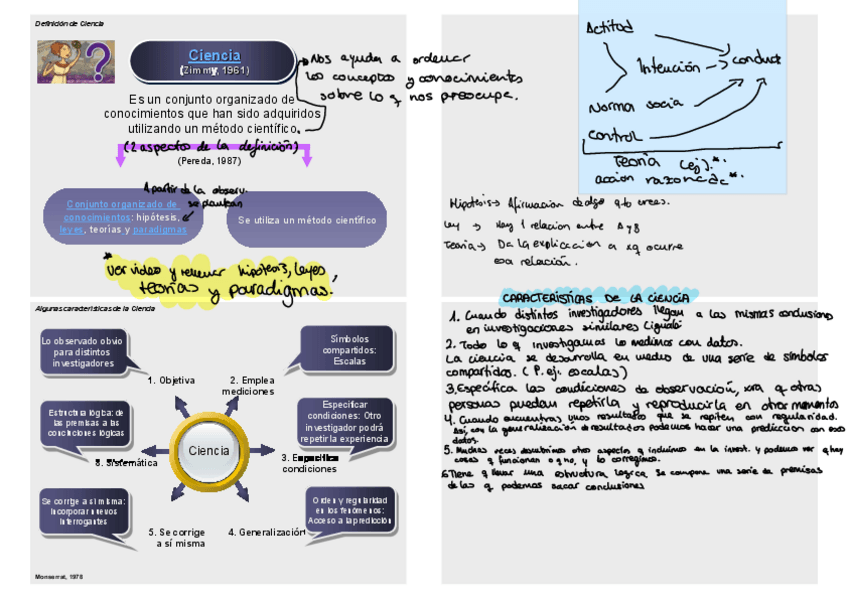 Definición de Ciencia
Ciencia
(Zimmy, 1961)
Nos ayuda a ordenar
los conceptos y conocimientos
sobre lo q nos preocupa.
Es un conjunto organizado de
conocimientos que han sido adquiridos
utilizando un método científico.
(2 aspectos de la definición)
(Pereda, 1987)
A partir de la observ.
se plantean
Conjunto organizado de
conocimientos: hipótesis,
leyes, teorías y paradigmas
Se utiliza un método científico
*
Ver video y rellenar hipótesis, leyes,
teorías y paradigmas.
Actitud
Intención
conduct
Norma socia
control
Teoría (ej).*
acción razonada*
Hipótesis → Afirmación de algo q tú crees.
Ley → Hay 1 relacion entre A y B
Teoria → Da la explicación a xq ocurre
esa relación.
Algunas características de la Ciencia
Lo observado obvio
para distintos
investigadores
Símbolos
compartidos:
Escalas
1. Objetiva
2. Emplea
mediciones
Estructura lógica: de
las premisas a las
conclusiones lógicas
Especificar
condiciones: Otro
investigador podrá
repetir la experiencia
Ciencia
6. Sistemática
3. Especifica
condiciones
Se corrige a sí misma:
Incorporar nuevos
interrogantes
Orden y regularidad
en los fenómenos:
Acceso a la predicción
5. Se corrige
a sí misma
4. Generalización
Monserrat, 1978
CARACTERÍSTICAS DE LA CIENCIA
1. Cuando distintos investigadores llegan a las mismas conclusiones
en investigaciones similares
2. Todo lo q investigamos lo medimos con datos.
La ciencia se desarrolla en medio de una serie de símbolos
compartidos. (P. ej: escalas)
3. Específica las condiciones de observación, xra q otras
personas puedan repetirla y reproducirla en otros momentos
4. Cuando encuentras unos resultados que se repiten con regularidad.
Así, con la generalización de resultados podemos hacer una predicción con esos
datos.
5. Muchas veces descubrimos otros aspectos q incluimos en la invest. y podemos ver q hay
cosas q funcionan o q no, y lo corregimos.
6. Tiene q llevar una estructura lógica. Se compone una serie de premisas
de las q podemos sacar conclusiones